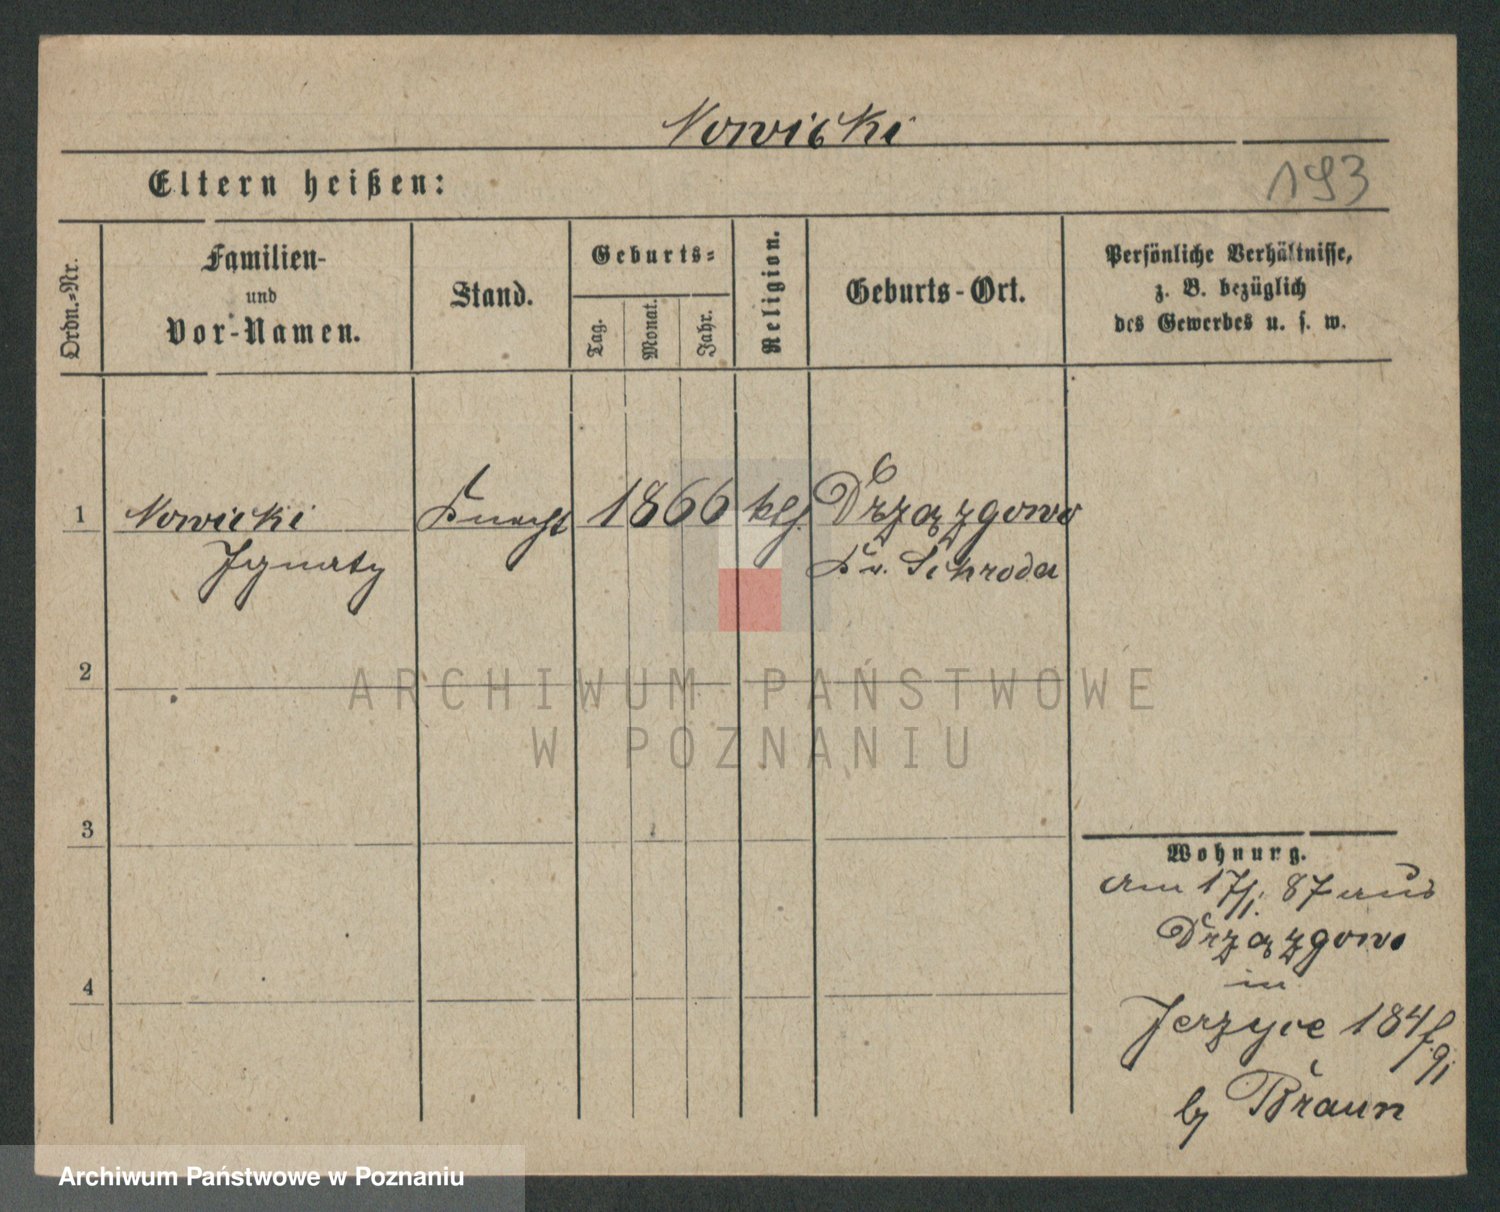 Nowicki
Eltern heißen:
193
Ordn.-Nr.
Familien-
und
Vor-Namen.
Stand.
Geburts-
Tag.
Monat.
Jahr.
Religion.
Geburts-Ort.
Persönliche Verhältnisse,
z. B. bezüglich
des Gewerbes u. s. w.
1
Nowicki
Ignaty
Knecht
1866
klh.
Drzązgowo
Kr. Schroda
2
ARCHIWUM PAŃSTWOWE
W POZNANIU
3
4
Wohnung.
am 17/1. 87 aus
Drzązgowo
in
Jerzyce 184
by Braun
Archiwum Państwowe w Poznaniu